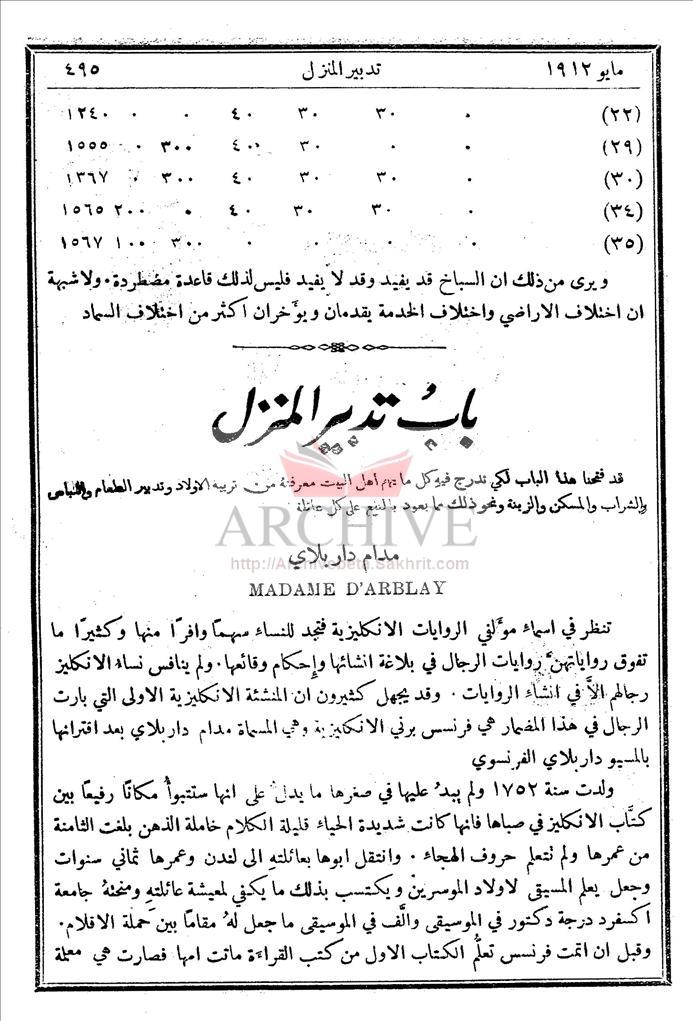 مايو ١٩١٢ تدبير المنزل ٤٩٥
(٢٢) ٠ ٣٠ ٣٠ ٤٠ ٠ ٠ ١٢٤٠
(٢٩) ٠ ٠ ٣٠ ٤٠٠ ٣٠٠ ٠ ١٥٥٥
(٣٠) ٠ ٣٠ ٣٠ ٤٠ ٣٠٠ ٠ ١٣٦٧
(٣٤) ٠ ٣٠ ٣٠ ٤٠ ٠ ٢٠٠ ١٥٦٥
(٣٥) ٠ ٠ ٠ ٠ ٣٠٠ ١٠٠ ١٥٦٧
ويرى من ذلك ان السباخ قد يفيد وقد لا يفيد فليس لذلك قاعدة مضطردة. ولا شبهة
ان اختلاف الاراضي واختلاف الخدمة يقدمان ويؤخران اكثر من اختلاف السماد
باب تدبير المنزل
قد فتحنا هذا الباب لكي ندرج فيه كل ما يهم أهل البيت معرفته من تربية الاولاد وتدبير الطعام واللباس
والشراب والمسكن والزينة ونحو ذلك مما يعود بالنفع على كل عائلة
ARCHIVE
http://Archivebeta.Sakhrit.com
مدام داربلاي
MADAME D'ARBLAY
تنظر في اسماء مؤلفي الروايات الانكليزية فتجد للنساء سهمًا وافرًا منها وكثيرًا ما
تفوق رواياتهنَّ روايات الرجال في بلاغة انشائها وإحكام وقائعها. ولم ينافس نساء الانكليز
رجالهم الاَّ في انشاء الروايات. وقد يجهل كثيرون ان المنشئة الانكليزية الاولى التي بارت
الرجال في هذا المضمار هي فرنسس برني الانكليزية وهي المسماة مدام داربلاي بعد اقترانها
بالمسيو داربلاي الفرنسوي
ولدت سنة ١٧٥٢ ولم يبدُ عليها في صغرها ما يدل على انها ستتبوأ مكانًا رفيعًا بين
كتَّاب الانكليز في صباها فانها كانت شديدة الحياء قليلة الكلام خاملة الذهن بلغت الثامنة
من عمرها ولم تتعلم حروف الهجاء. وانتقل ابوها بعائلتهِ الى لندن وعمرها ثماني سنوات
وجعل يعلم المسيقى لاولاد الموسرين ويكتسب بذلك ما يكفي لمعيشة عائلتهِ ومنحتهُ جامعة
اكسفرد درجة دكتور في الموسيقى والَّف في الموسيقى ما جعل لهُ مقامًا بين حملة الاقلام.
وقبل ان اتمت فرنسس تعلُّم الكتاب الاول من كتب القراءة ماتت امها فصارت هي معلمة